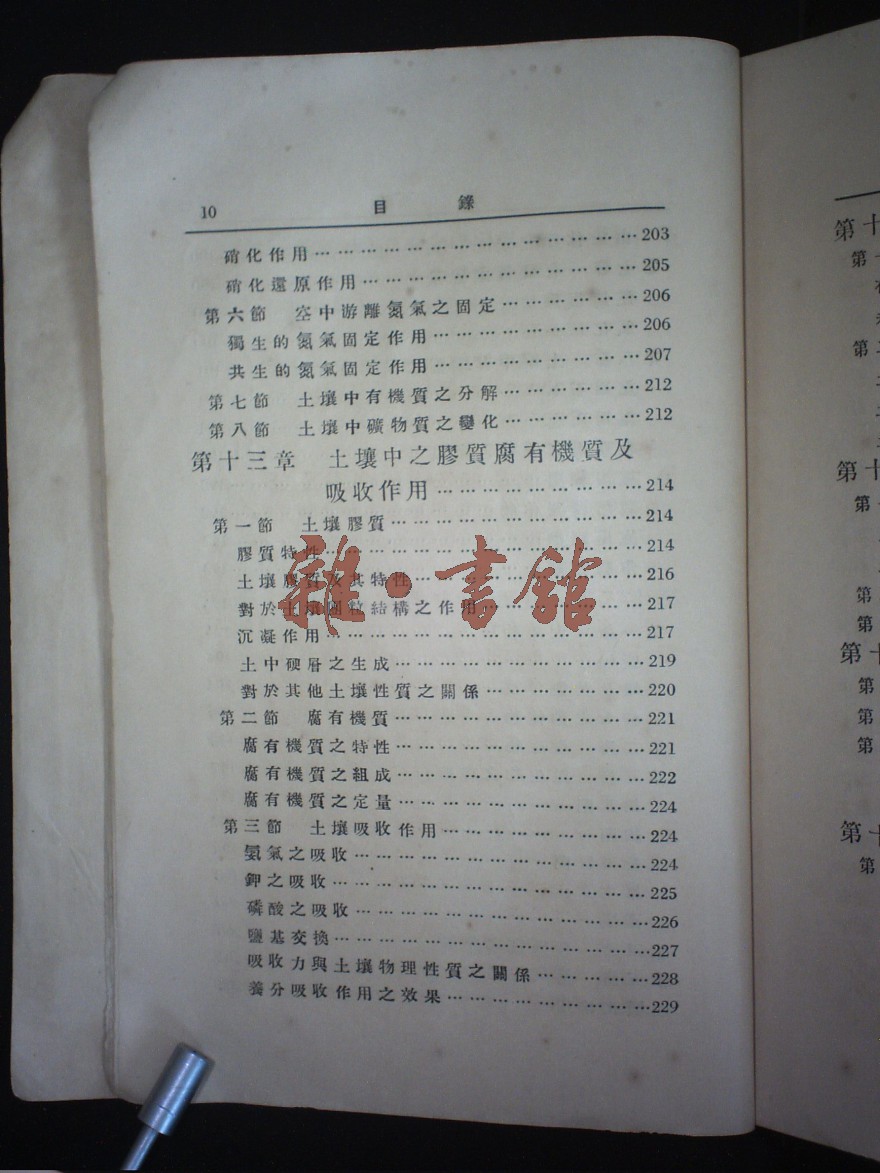 10 目錄
硝化作用 … 203
硝化還原作用 … 205
第六節 空中游離氮氣之固定 … 206
獨生的氮氣固定作用 … 206
共生的氮氣固定作用 … 207
第七節 土壤中有機質之分解 … 212
第八節 土壤中礦物質之變化 … 212
第十三章 土壤中之膠質腐有機質及
吸收作用 … 214
第一節 土壤膠質 … 214
膠質特性 … 214
土壤膠質及其特性 … 216
對於土壤團粒結構之作用 … 217
沉凝作用 … 217
土中硬層之生成 … 219
對於其他土壤性質之關係 … 220
第二節 腐有機質 … 221
腐有機質之特性 … 221
腐有機質之組成 … 222
腐有機質之定量 … 224
第三節 土壤吸收作用 … 224
氨氣之吸收 … 224
鉀之吸收 … 225
磷酸之吸收 … 226
鹽基交換 … 227
吸收力與土壤物理性質之關係 … 228
養分吸收作用之效果 … 229
雜·書館
第十
第
第二
第十
第一
第
第
第十
第
第
第
第十
第